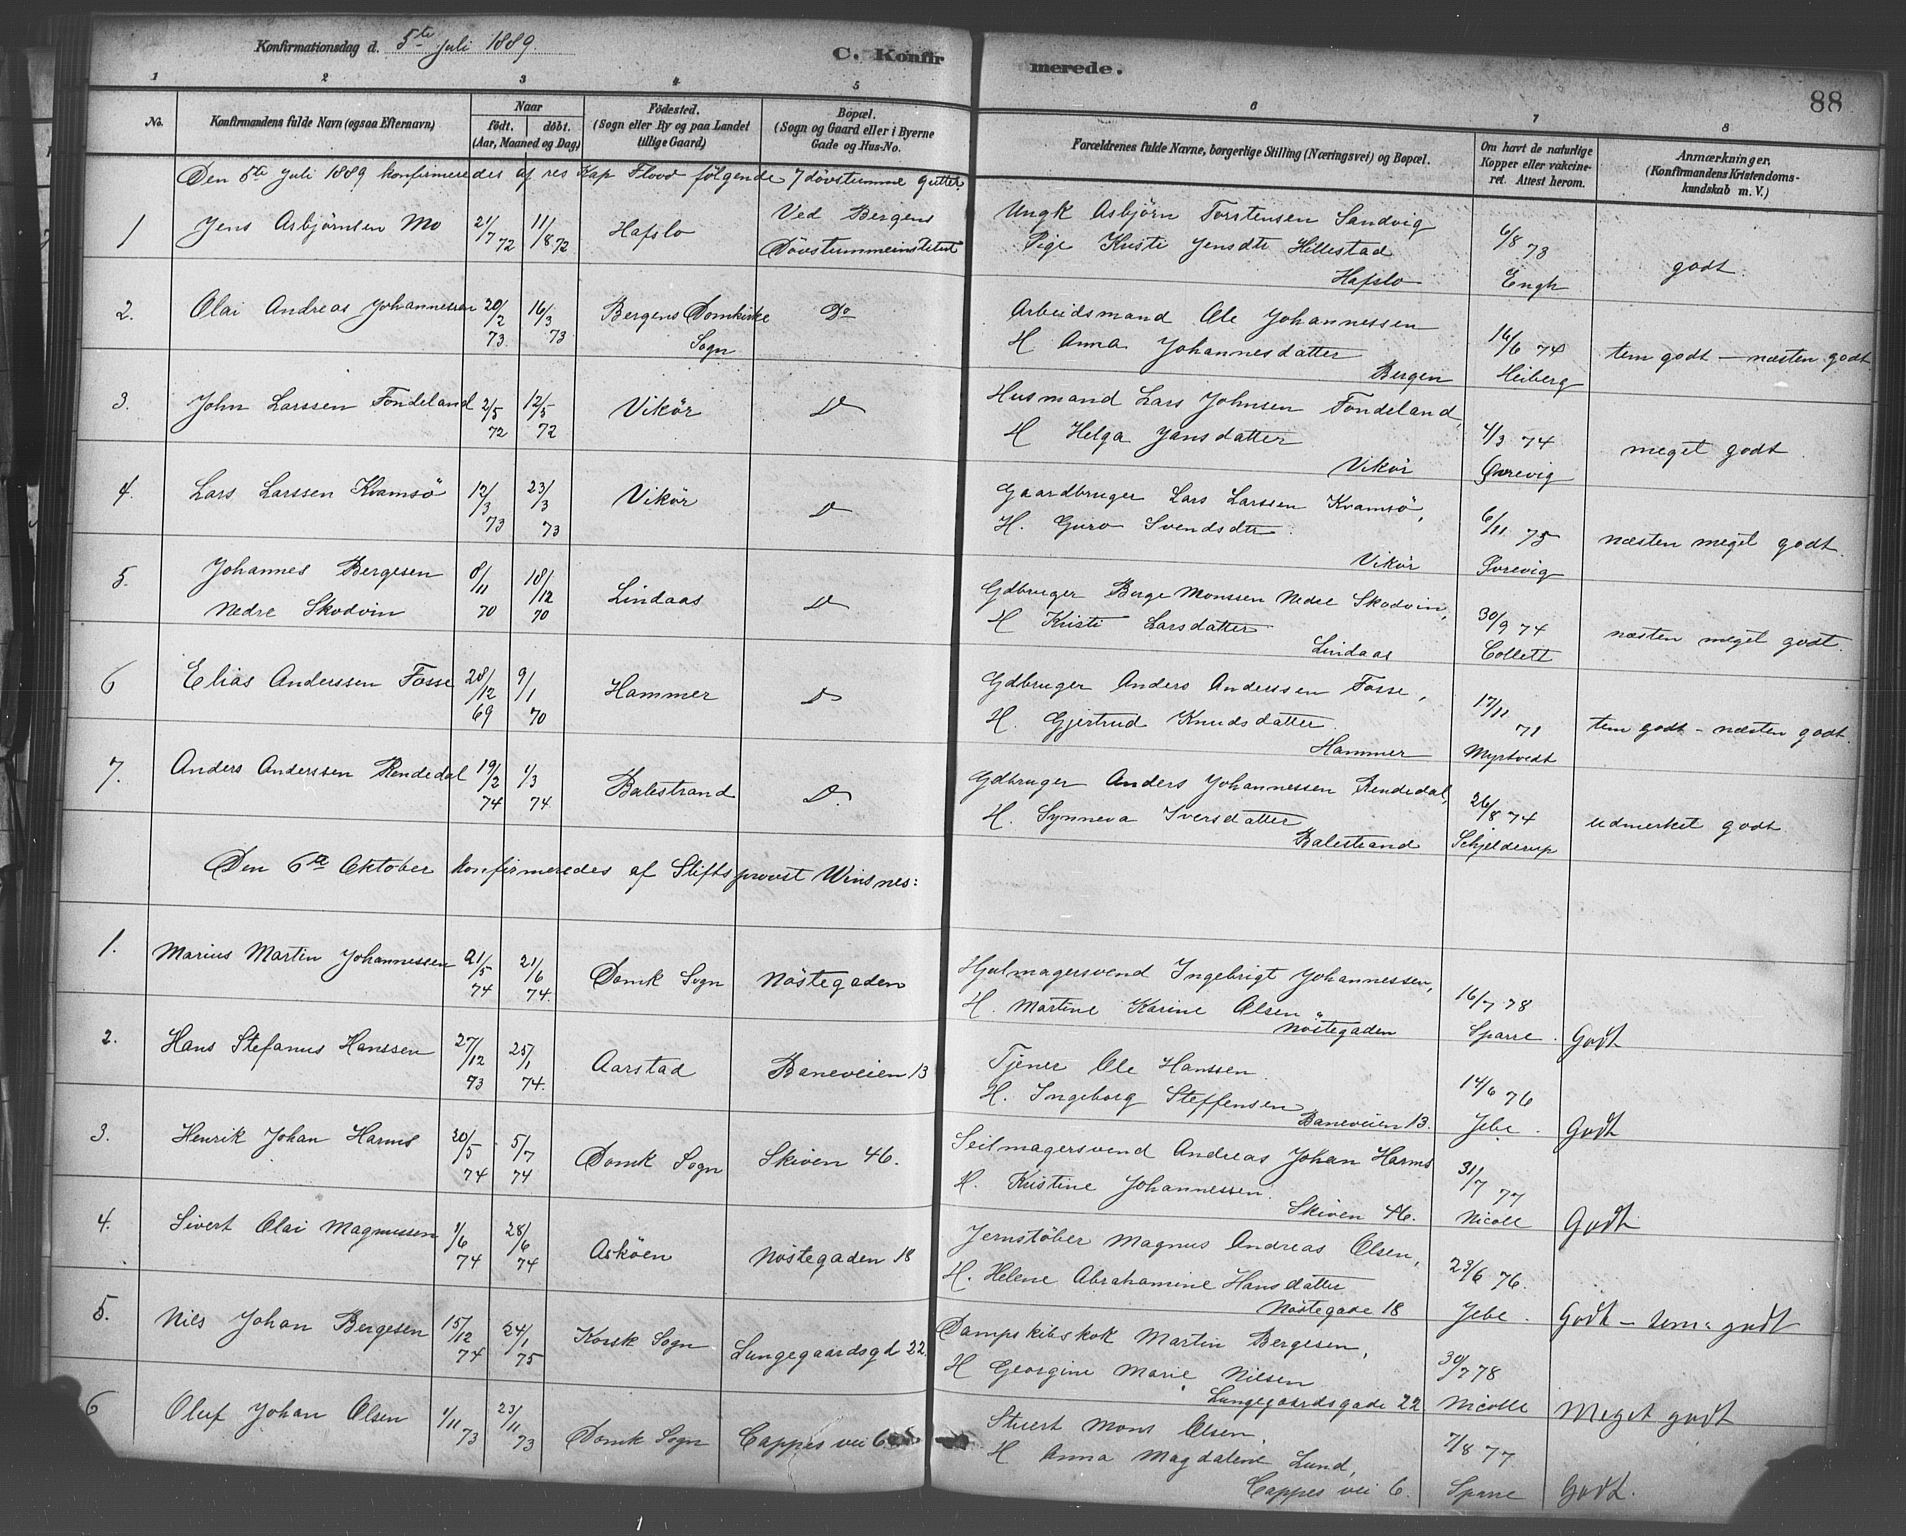 Konfirmationsdag d. 5te juli 1889.
C. Konfirmerede.
88
1 2 3 4 5 6 7 8
No.
Konfirmandens fulde Navn (ogsaa Efternavn)
Naar
født. døbt.
(Aar, Maaned og Dag)
Fødested.
(Sogn eller By og paa Landet
tillige Gaard)
Bopæl.
(Sogn og Gaard eller i Byerne
Gade og Hus-No.
Forældrenes fulde Navne, borgerlige Stilling (Næringsvei) og Bopæl.
Om havt de naturlige
Kopper eller vakcine-
ret. Attest herom.
Anmærkninger,
(Konfirmandens Kristendoms-
kundskab m. V.)
Den 5te Juli 1889 konfirmeredes af res Kap Flood følgende 7 døvstumme gutter
1 Jens Asbjørnsen Mo 21/7 72 11/8 72 Hafslo Ved Bergens Døvstummeinstitut
Ungk Asbjørn Torstensen Sandvig
Pige Kristi Jensdtr Hillestad
Hafslo
6/8 73 Engh godt.
2. Olai Andreas Johannessen 20/2 73 16/3 73 Bergens Domkirke Sogn Do
Arbeidsmand Ole Johannessen
H Anna Johannesdatter
Bergen
16/6 74 Heiberg tem godt – næsten godt
3. John Larssen Fondeland 2/5 72 12/5 72 Vikör D
Husmand Lars Johnsen Fondeland,
H Helga Jansdatter
Vikör
4/3 74 meget godt
4. Lars Larssen Kvamsö 12/3 73 23/3 73 Vikör D
Gaardbruger Lars Larssen Kvamsö,
H. Guro Svendsdtr.
Vikör
6/11 75 næsten meget godt.
5. Johannes Bergesen
nedre Skodvin 8/11 70 18/12 70 Lindaas D
Gdbruger Berge Monssen Nedre Skodvin,
H Kristi Larsdatter
Lindaas
30/9 74 Collett næsten meget godt.
6 Elias Anderssen Fosse 28/12 69 9/1 70 Hammer D
Gdbruger Anders Anderssen Fosse,
H. Gjertrud Knudsdatter
Hammer
17/11 71 Myrtvedt tem godt – næsten godt.
7. Anders Anderssen Rendedal 19/2 74 1/3 74 Balestrand D.
Gdbruger Anders Johannessen Rendedal,
H. Synneva Iversdatter
Balestrand
26/8 74 Schjelderup udmerket godt
Den 6te Oktober konfirmeredes af Stiftsprovst Winsnes:
1. Marius Martin Johannessen 21/5 74 21/6 74. Domk Sogn Nöstegaden
Hjulmagersvend Ingebrigt Johannessen,
H. Martine Karine Olsen
Nöstegaden
16/7 78 Sparre. Godt
2. Hans Stefanus Hanssen 27/12 73 25/1 74. Aarstad Baneveien 13
Tjener Ole Hanssen.
H. Ingeborg Steffensen
Baneveien 13.
14/6 76 Jebe. Godt
3. Henrik Johan Harms 20/5 74 5/7 74 Domk Sogn Skiven 46.
Seilmagersvend Andreas Johan Harms
H. Kristine Johannessen.
Skiven 46.
31/7 77 Nicoll Godt
4. Sivert Olai Magnussen 1/6 74 28/6 74 Askøen Nöstegaden 18
Jernstøber Magnus Andreas Olsen,
H. Helene Abrahamine Hansdatter
Nöstegade 18
23/6 76. Jebe. Godt – tem. godt
5. Nils Johan Bergesen 15/12 74 24/1 75 Korsk Sogn Lungegaardsgd 22.
Dampskibskok Martin Bergesen,
H Georgine Marie Nilsen
Lungegaardsgade 22
30/7 78 Nicoll Meget godt
6 Oluf Johan Olsen 1/11 73 23/11 73 Domk Sogn Cappes vei 6
Stuert Mons Olsen,
H Anna Magdalene Lund,
Cappes vei 6.
7/8 77 Sparre Godt.